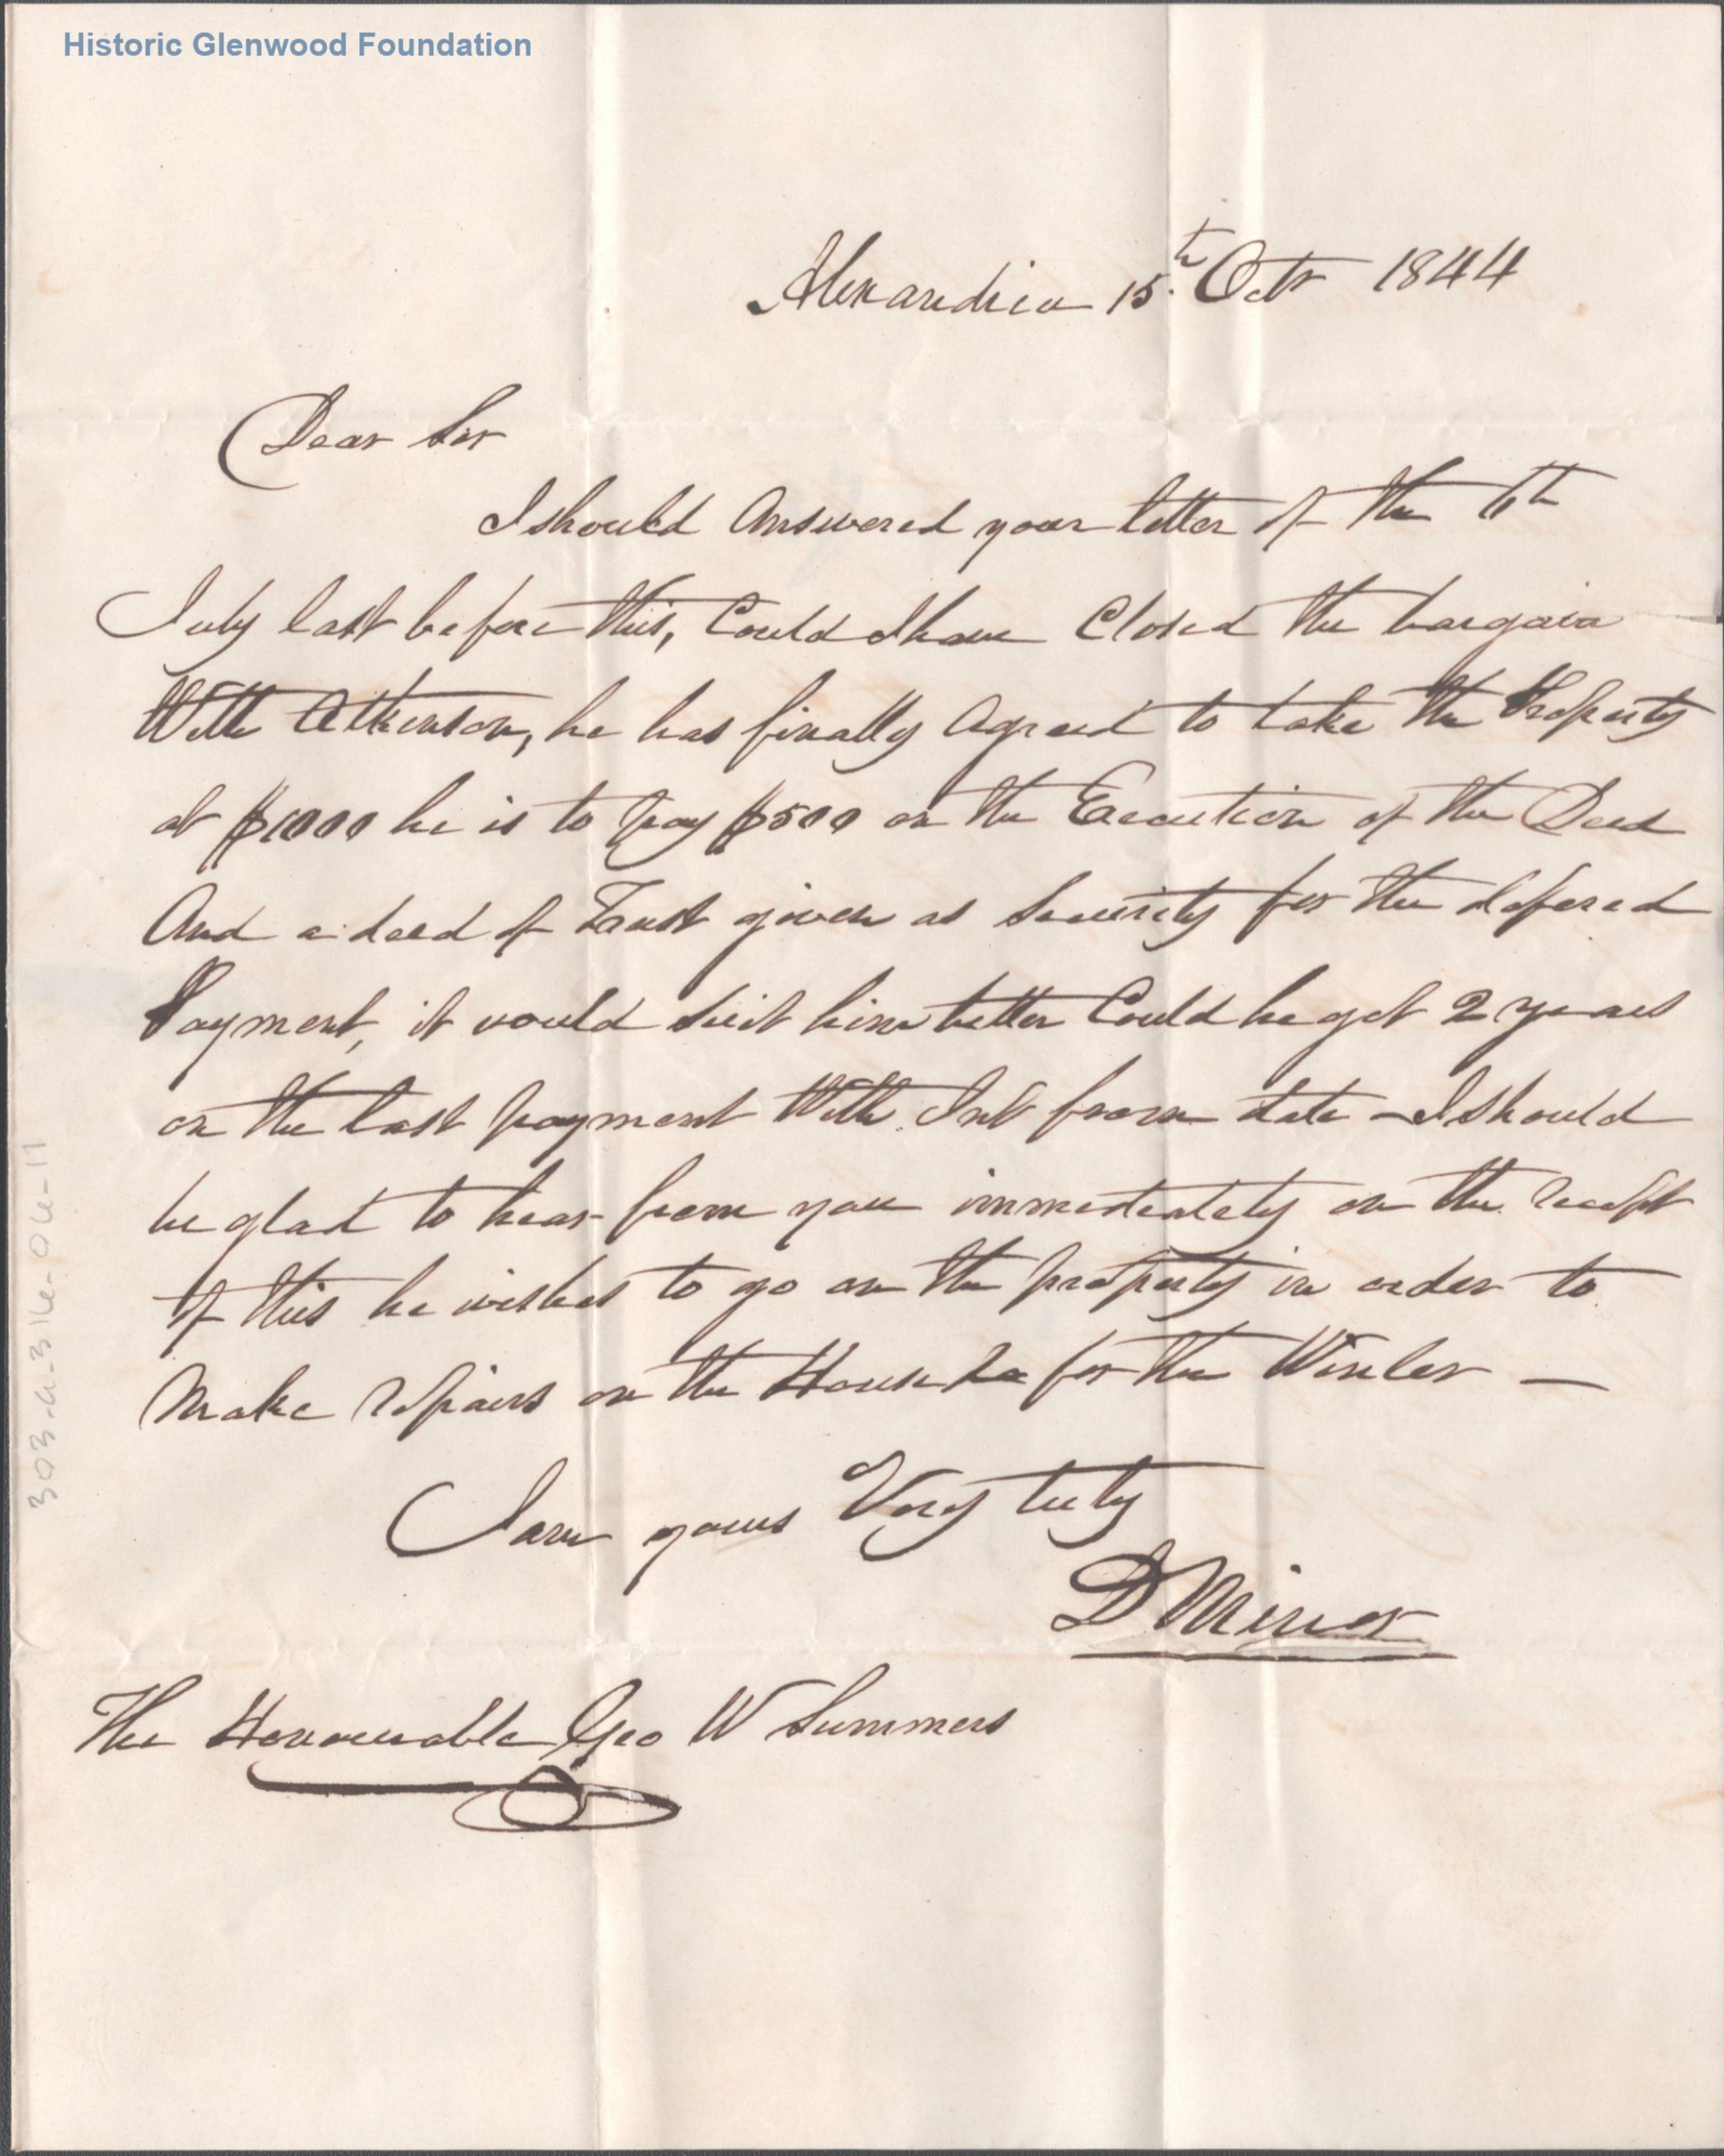 Historic Glenwood Foundation
Alexandria 15th Octr 1844
Dear Sir
I should Answered your letter of the 6th
July last before this, Could I have Closed the bargain
With Atkinson, he has finally Agreed to take the Property
at $1000 he is to pay $500 on the Execution of the Deed
And a deed of Trust given as Security for the defered
Payment, it would Suit him better Could he get 2 years
on the last payment With Int from date - I should
be glad to hear from you immediately on the receipt
of this he wishes to go on the property in order to
Make repairs on the House &c for the Winter —
I am yours Very truly
D Minor
The Honourable Geo W Summers
303-4-316-04-11